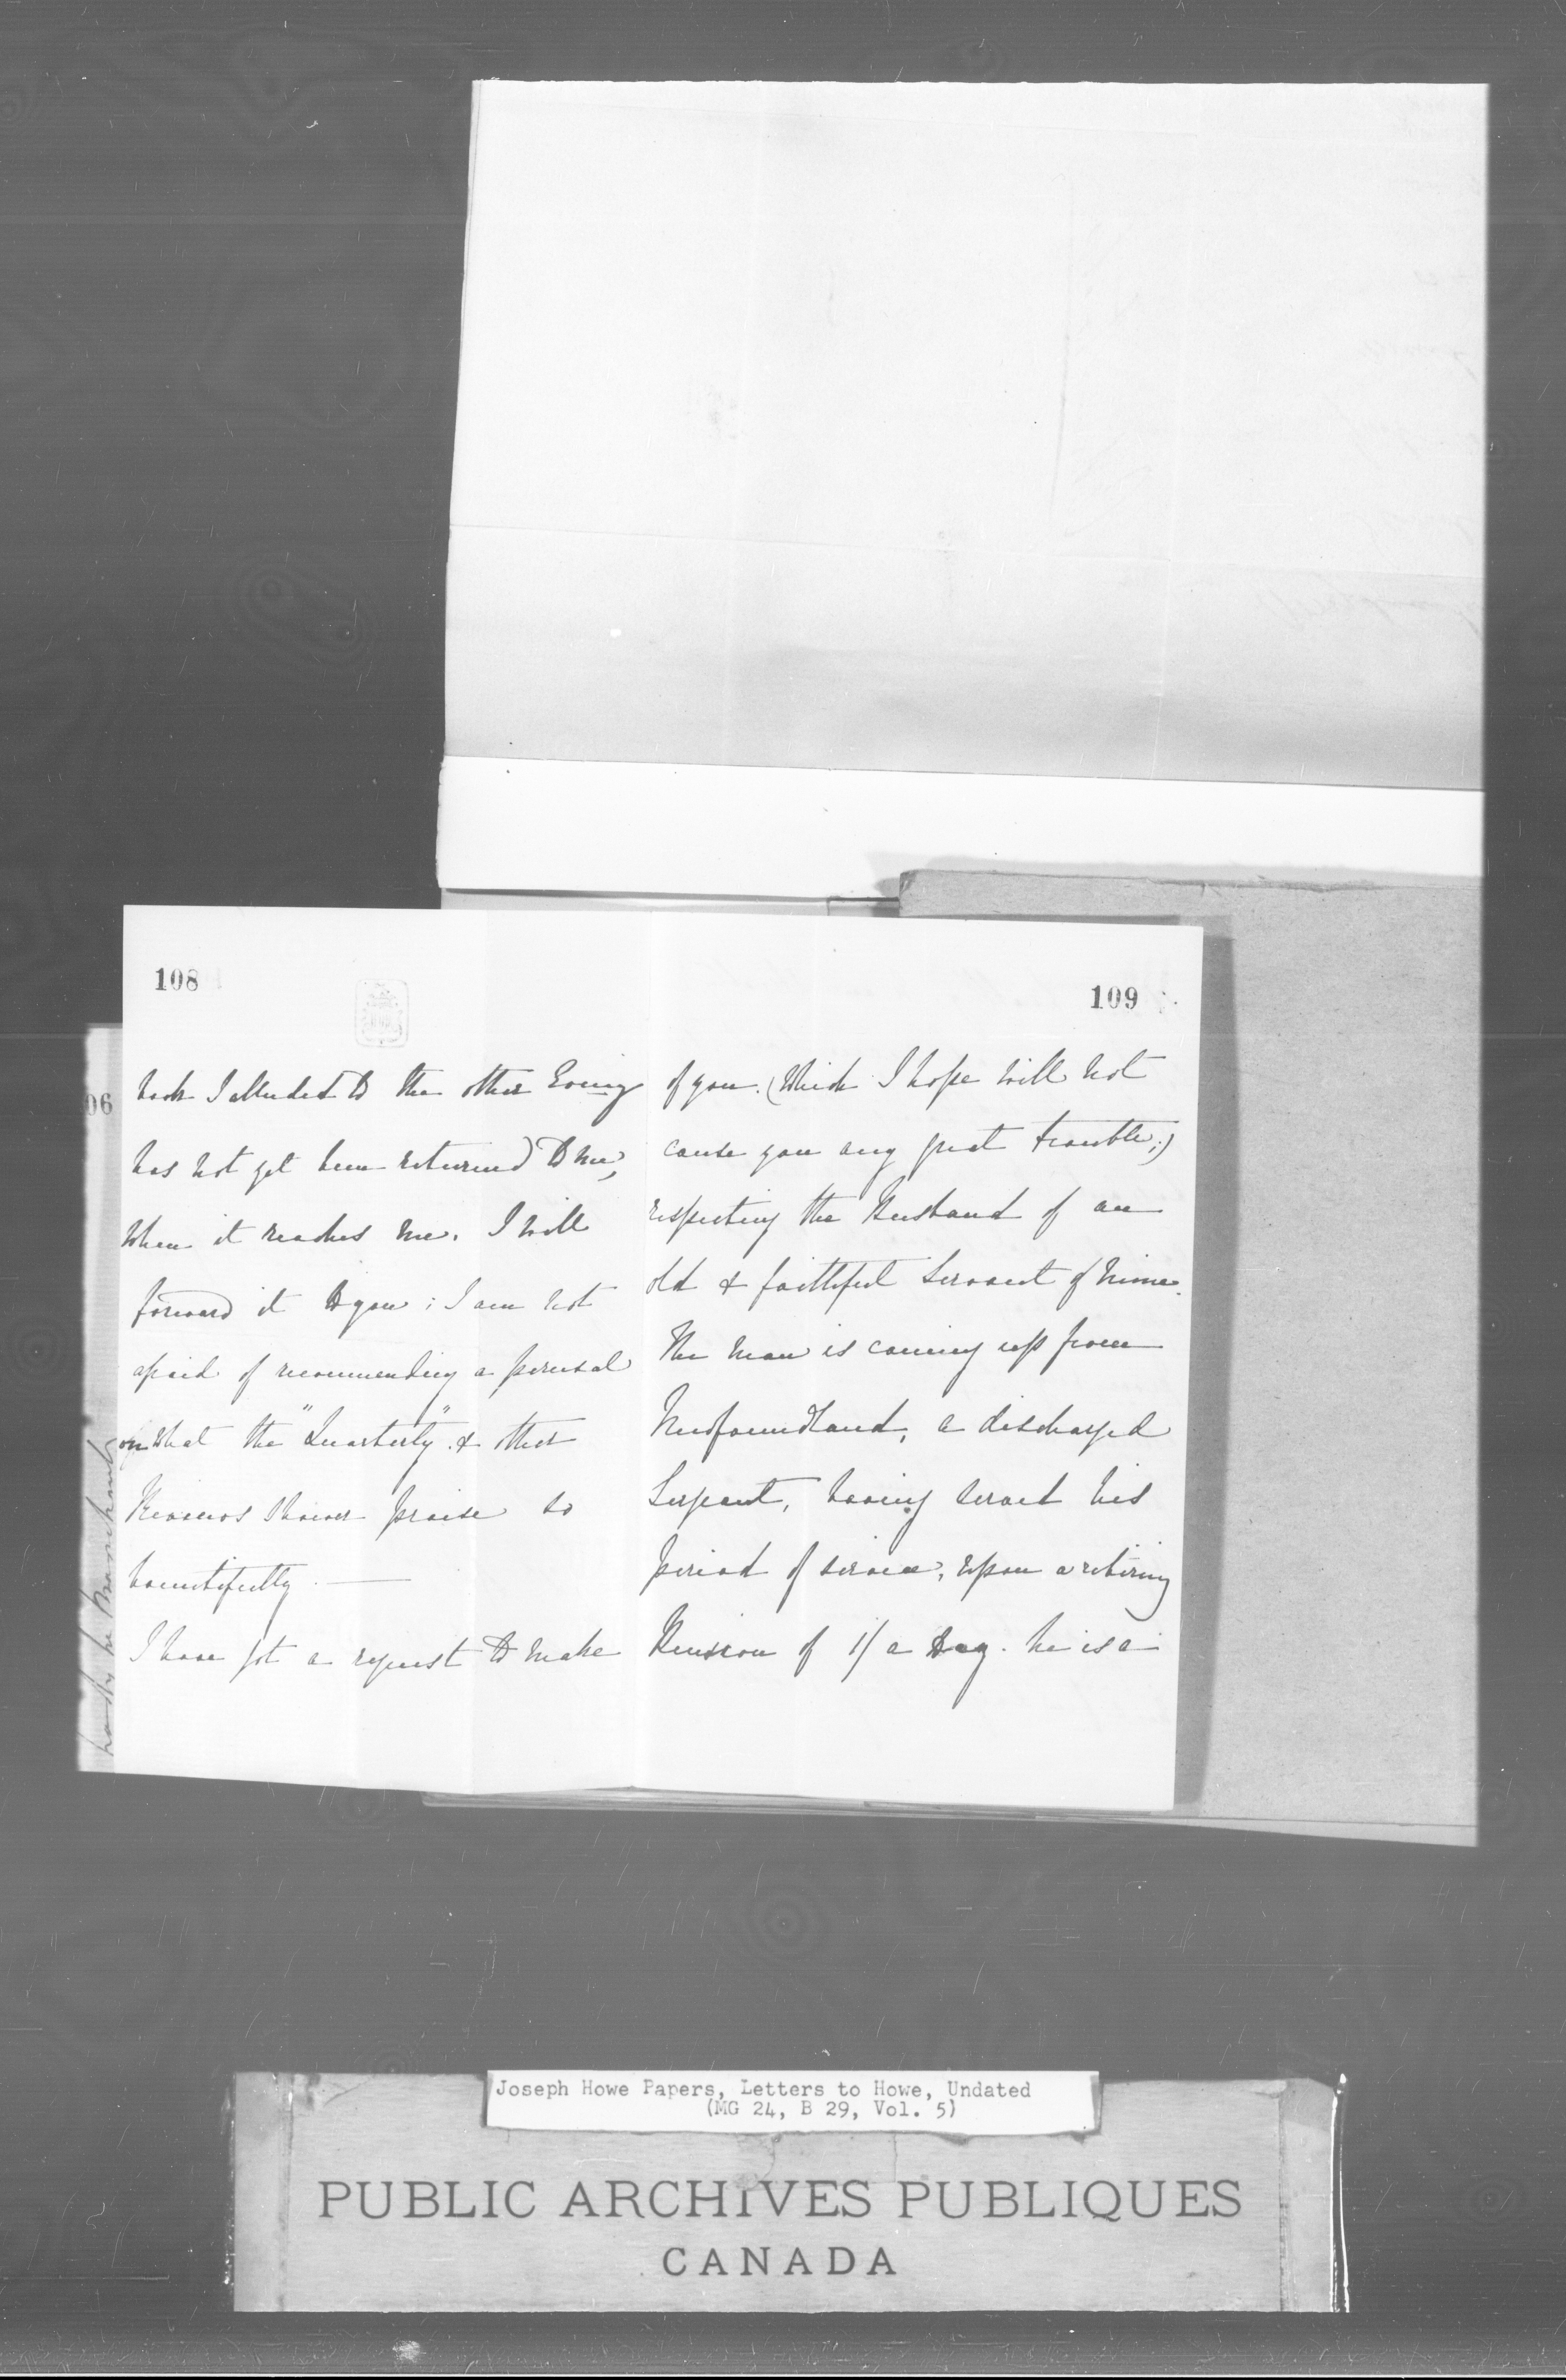 108
book I alluded to the other Evening
has not yet been returned to me,
When it reaches me. I will
forward it to you; I am not
afraid of recommending a perusal
on what the "Quarterly" & other
Reviews shower praise so
bountifully. —
I have got a request to make
109
of you. (Which I hope will not
cause you any great trouble;)
respecting the Husband of an
old & faithful Servant of mine.
The man is coming up from
Newfoundland, a discharged
Sergeant, having served his
period of service, upon a retiring
Pension of 1/ a day. he is a
06
Joseph Howe Papers, Letters to Howe, Undated
(MG 24, B 29, Vol. 5)
PUBLIC ARCHIVES PUBLIQUES
CANADA